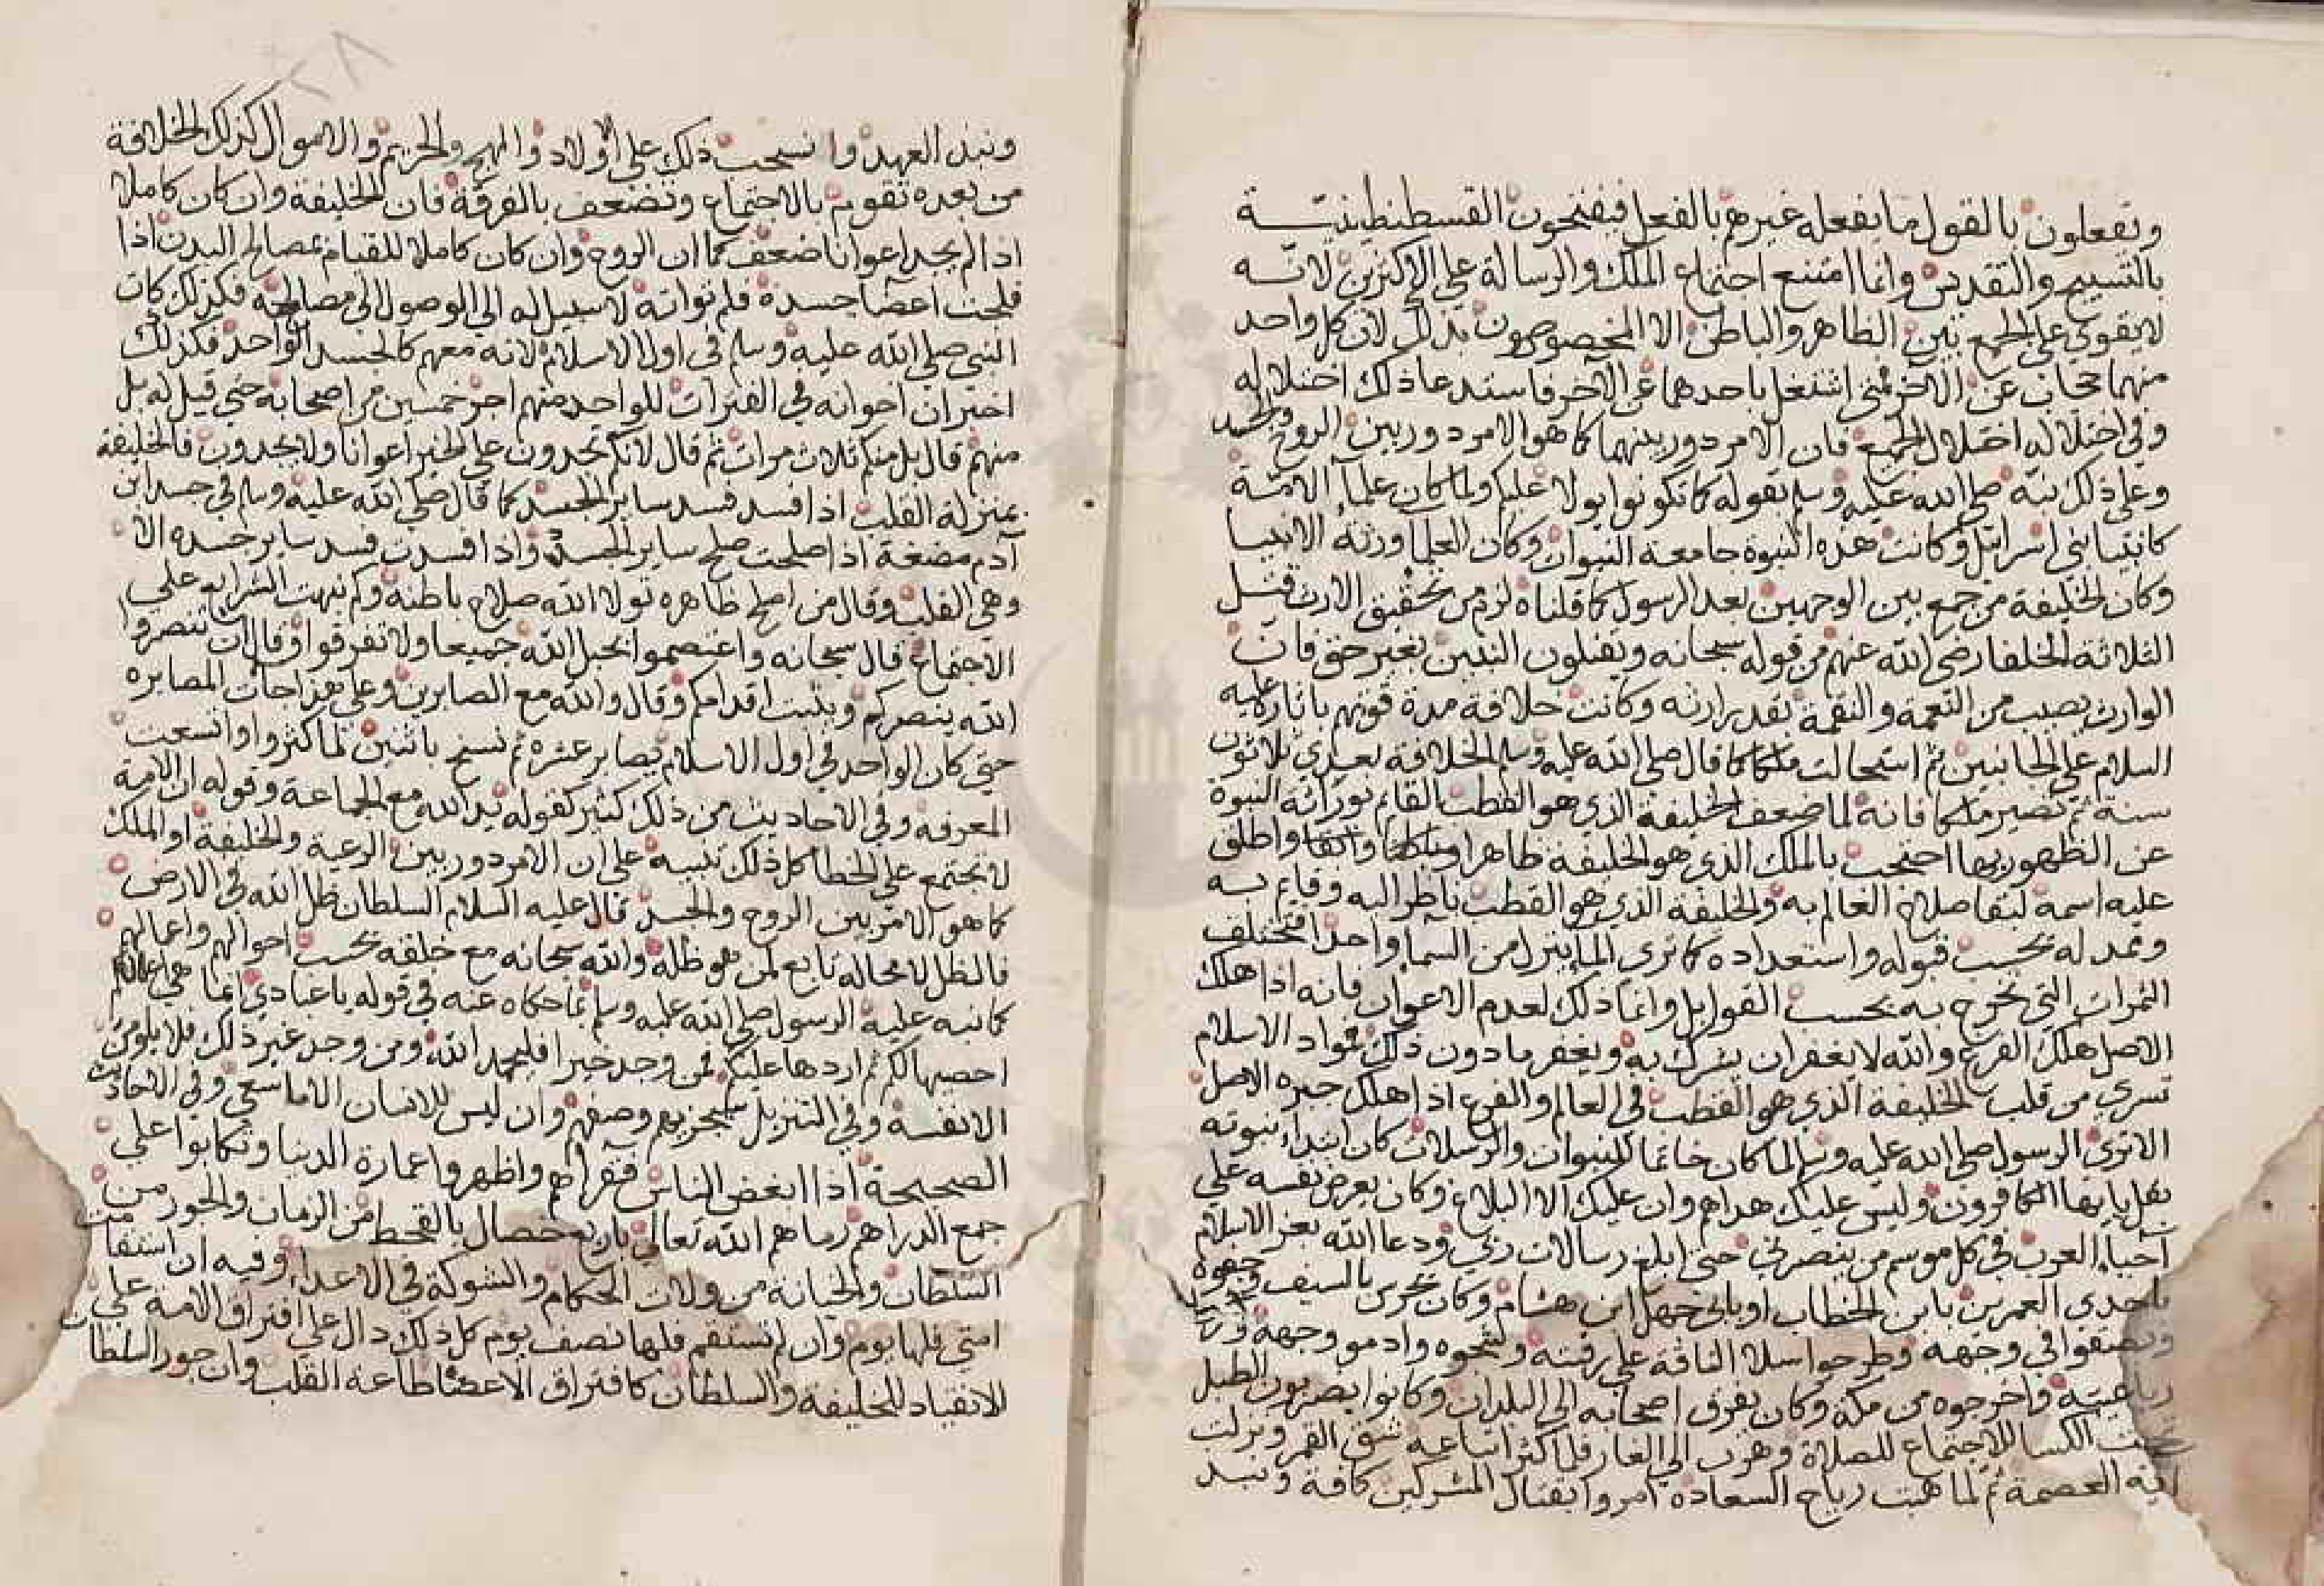 ويفعلون بالقول ما يفعله غيرهم بالفعل فيفتحون القسطنطينيّة
بالتسبيح والتقديس وانما امتنع اجتماع الملك والرسالة على الاكثرين لانّه
لا يقوى على الجمع بين الظاهر والباطن الا المخصوصون بذلك لان كل واحد
منهما حجاب عن الآخر فمتى اشتغل باحدهما عن الآخر فاستدعا ذلك اختلاله
وفي اختلاله اختلال الجميع فان الامر دور بينهما كما هو الامر دور بين الروح والجسد
وعلى ذلك نبّه صلى الله عليه وسلم بقوله كما تكونوا يولا عليكم ولما كان علماء الامّة
كانبيا بني اسرائيل وكانت هذه النبوة جامعة النبوات وكان العلما ورثة الانبيا
وكان الخليفة من جمع بين الوجهين بعد الرسول كما قلناه لزم من تحقيق الارث قتل
الثلاثة الخلفا رضى الله عنهم من قوله سبحانه ويقتلون النبيين بغير حق فان
الوارث يصيب من النعمة والنقمة بقدر ارثه وكانت خلافة مدة قوتهم باثاره عليه
السلام على الجانبين ثم استحالت ملكا كما قال صلى الله عليه وسلم الخلافة بعدي ثلاثون
سنة ثم تصير ملكا فانه لما ضعف الخليفة الذي هو القطب القائم بوراثة النبوة
عن الظهور بها احتجب بالملك الذي هو الخليفة ظاهرا واطلق
عليه اسمه لبقا صلاح العالم به والخليفة الذي هو القطب ناظر اليه وقايم به
وممد له بحسب قبوله واستعداده كما ترى الما ينزل من السما واحدا فتختلف
الثمرات التي تخرج به بحسب القوابل وانما ذلك لعدم الاعوان فانه اذا هلك
الاصل هلك الفرع والله لا يغفر ان يشرك به ويغفر ما دون ذلك فمواد الاسلام
تسري من قلب الخليفة الذي هو القطب في العالم والفرع اذا هلك جبره الاصل
الا ترى الرسول صلى الله عليه وسلم لما كان خاتما للنبوات والرسلات كان ابتداء نبوته
بقل يايها الكافرون وليس عليك هداهم وان عليك الا البلاغ وكان يعرض نفسه على
احياء العرب في كل موسم من ينصرني حتى ابلغ رسالات ربي ودعا الله بعز الاسلام
باحدى العمرين بابن الخطاب او بابى جهل ابن هشام وكان يحرس بالسيف
وبصقوا في وجهه وطرحوا سلا الناقة على رقبته وشجوه وادمو وجهه
رباعيته واخرجوه من مكة وكان يفرق اصحابه الى البلدان وكانوا يضربون الطبل
تحت الكسا للاجتماع للصلاة وهرب الى الغار فلما كثر اتباعه شق القمر ونزلت
اية العصمة ثم لما هبت رياح السعادة امروا بقتال المشركين كافة ونبد
ونبد العهد وانسحب ذلك على الاولاد والمهج والحريم والاموال كذلك الخلافة
من بعده تقوم بالاجتماع وتضعف بالفرقة فان الخليفة وان كان كاملا
اذا لم يجد اعوانا ضعف كما ان الروح وان كان كاملا للقيام بمصالح البدن اذا
فلجت اعضا جسده فلم تواته لا سبيل له الى الوصول الى مصالحه فكذلك كان
النبي صلى الله عليه وسلم في اول الاسلام لانه معهم كالجسد الواحد فكذلك
اخبر ان اخوانه في الفترات للواحد منهم اجر خمسين من اصحابه حتى قيل له بل
منهم قال بل منكم ثلاث مرات ثم قال لانكم تجدون على الخير اعوانا ولا يجدون فالخليفة
بمنزلة القلب اذا فسد فسد ساير الجسد كما قال صلى الله عليه وسلم في جسد ابن
آدم مضغة اذا صلحت صلح ساير الجسد واذا فسدت فسد ساير جسده الا
وهى القلب وقال من اصلح ظاهره تولا الله صلاح باطنه وكم نبهت الشرايع على
الاجتماع قال سبحانه واعتصموا بحبل الله جميعا ولا تفرقوا وقال ان تنصروا
الله ينصركم ويثبت اقدامكم وقال والله مع الصابرين وعلى هذا جات المصابره
حتى كان الواحد في اول الاسلام يصابر عشره ثم نسخ باثنين لما كثروا واتسعت
المعرفة وفي الاحاديث من ذلك كثير كقوله يد الله مع الجماعة وقوله ان الامة
لا تجتمع على الخطا كل ذلك تنبيه على ان الامر دور بين الرعية والخليفة او الملك
كما هو الامر بين الروح والجسد قال عليه السلام السلطان ظل الله في الارض
فالظل لا محاله تابع لمن هو ظله والله سبحانه مع خلقه بحسب احوالهم واعمالهم
كما نبه عليه الرسول صلى الله عليه وسلم بما حكاه عنه في قوله يا عبادي انما هي اعمالكم
احصيها لكم ثم اردها عليكم فمن وجد خيرا فليحمد الله ومن وجد غير ذلك فلا يلومن
الا نفسه وفي التنزيل سيجزيهم وصفهم وان ليس للانسان الا ما سعى وفي الاحاديث
الصحيحة اذا ابغض الناس فقراهم واظهروا عمارة الدنيا وتكالبوا على
جمع الدراهم رماهم الله تعالى باربع خصال بالقحط من الزمان والجور من
السلطان والخيانة من ولات الحكام والشوكة في الاعداء وفيه ان استقامت
امتي فلها يوم وان لم تستقم فلها نصف يوم كل ذلك دال على افتراق الامة على
الانقياد للخليفة والسلطان كافتراق الاعضا طاعة القلب وان جور السلطان